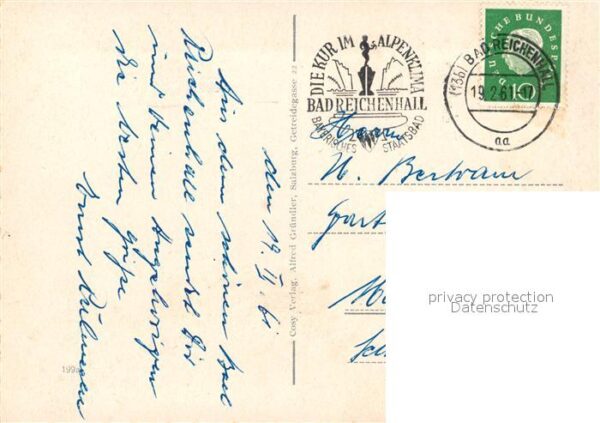 den 19. II. 61.
Aus dem schönen Bad
Reichenhall sendet Dir
und Deinen Angehörigen
die besten Grüße
Cosy Verlag, Alfred Gründler, Salzburg, Getreidegasse 22
DIE KUR IM ALPENKLIMA
BAD REICHENHALL
BAYRISCHES STAATSBAD
(13b) BAD REICHENHALL
19.2.61.-17
aa
DEUTSCHE BUNDESPOST
10
Herrn
Bertram
privacy protection
Datenschutz